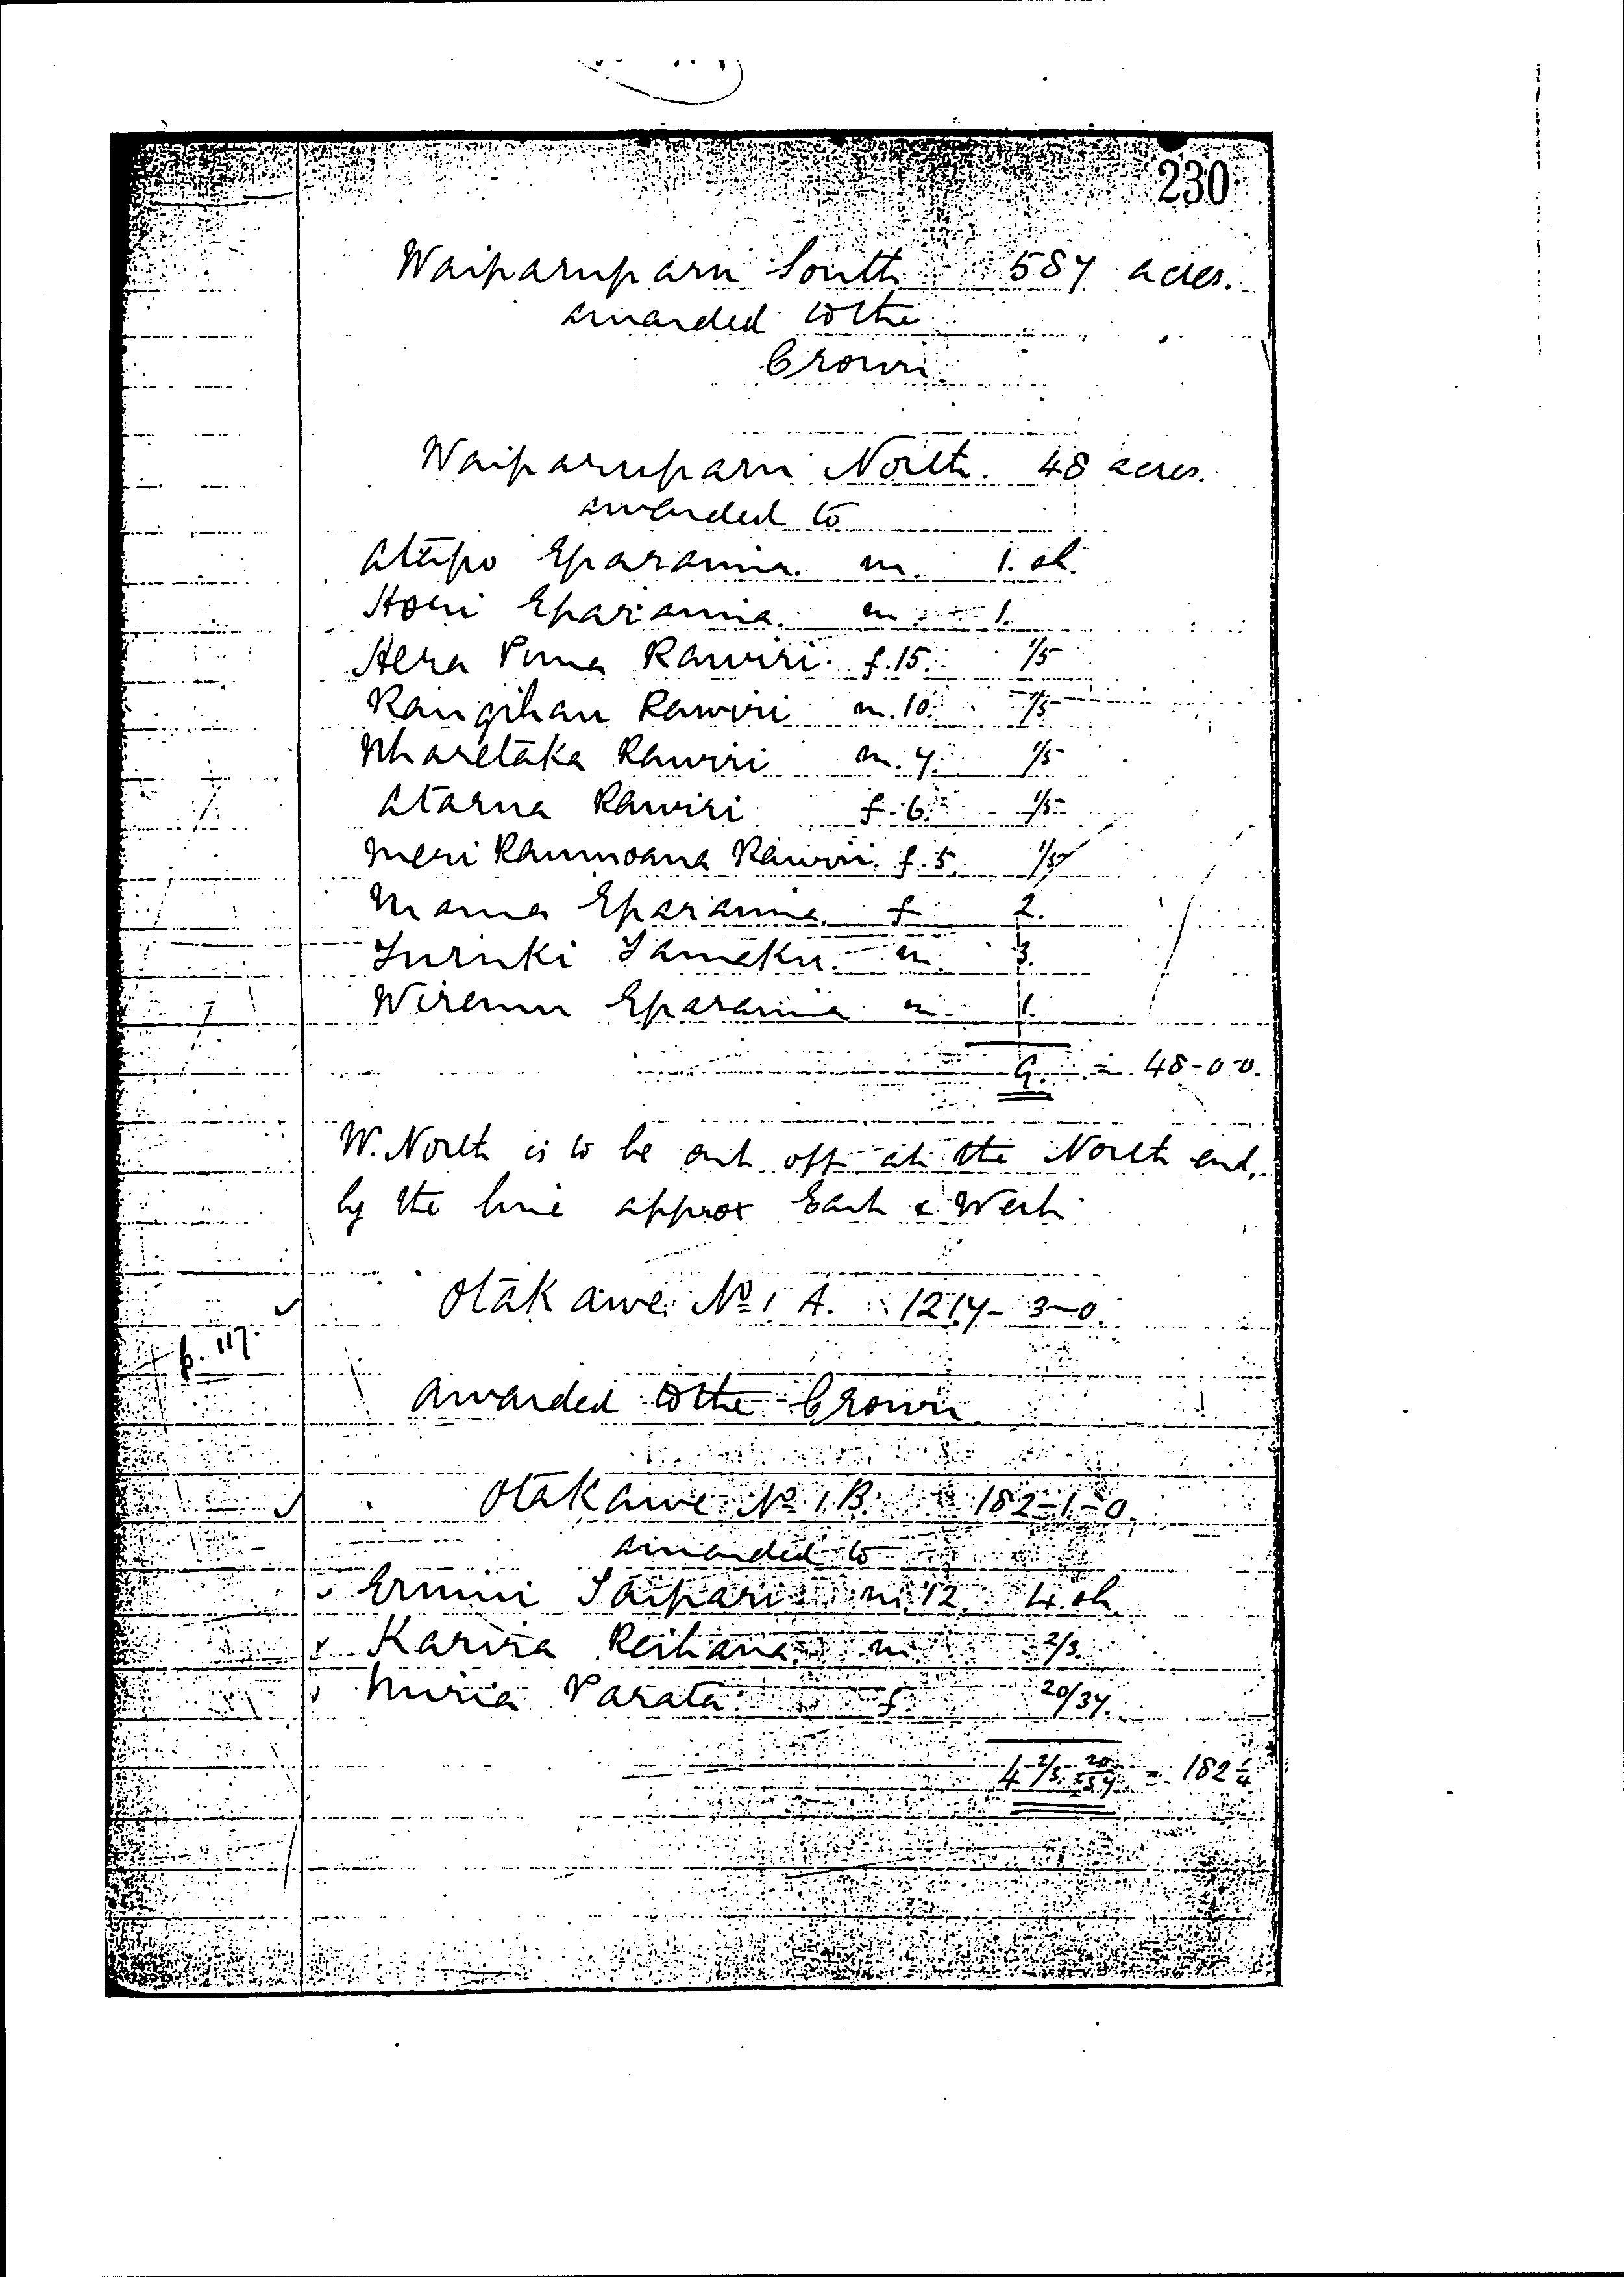 230
Waiparuparu South 587 acres.
awarded to the
Crown
Waiparuparu North. 48 acres.
awarded to
Atapo Eparaima. m. 1. sh.
Hori Eparaima. m. 1.
Hera Puna Rawiri. f. 15. 1/5
Rangihau Rawiri m. 10. 1/5
Wharetaka Rawiri m. 7. 1/5
Atarua Rawiri f. 6. 1/5
Meri Raumoana Rawiri. f. 5. 1/5
Mama Eparaima. f 2.
Turuki Tameku. m. 3.
Wiremu Eparaima m 1.
9. = 48-0-0.
W. North is to be cut off at the North end,
by the line approx East & West
Otakawe No 1 A. 1217-3-0.
p. 117.
awarded to the Crown
Otakawe No 1 B. 182-1-0.
awarded to
Erimi Taipari m. 12. 4. sh
Karira Reihana. m. 2/3.
Miria Parata f. 20/37.
4 2/3. 20/37 = 182 1/4